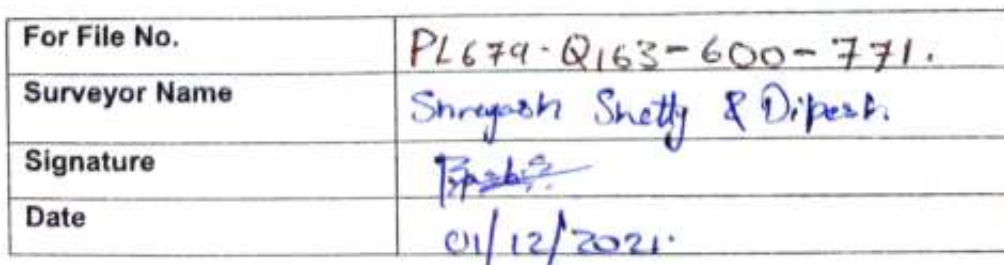 For File No. PL679-Q163-600-771.
Surveyor Name Shreyash Shetty & Dipesh.
Signature
Date 01/12/2021.